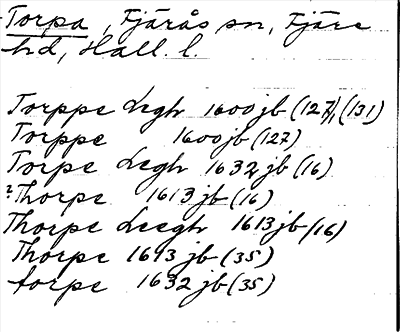 Torpa, Fjärås sn, Fjäre
hd, Hall. l.
Torppe Legh 1600 jb (127), (131)
Torppe 1600 jb (127)
Torpe Leegh 1632 jb (16)
?Thorpe 1613 jb (16)
Thorpe Leegh 1613 jb (16)
Thorpe 1613 jb (35)
torpe 1632 jb (35)